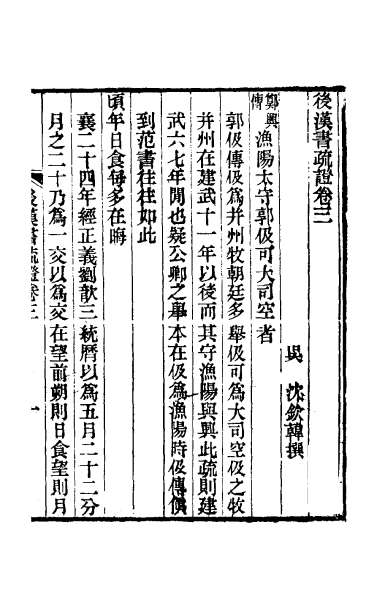 後漢書疏證卷三
吳　沈欽韓撰
鄭興傳　漁陽太守郭伋可大司空者
郭伋傳伋爲并州牧朝廷多舉伋可爲大司空伋之牧
并州在建武十一年以後而其守漁陽與興此疏則建
武六七年閒也疑公卿之舉本在伋爲漁陽時伋傳傎
到范書往往如此
頃年日食每多在晦
襄二十四年經正義劉歆三統曆以爲五月二十二分
月之二十乃爲一交以爲交在望前朔則日食望則月
後漢書疏證卷三　一